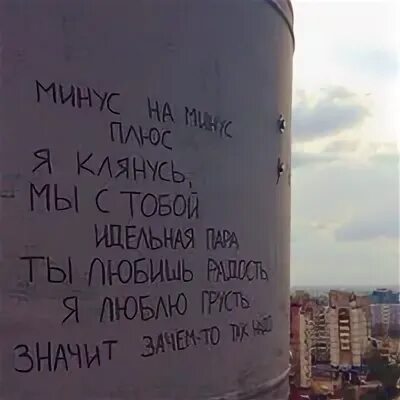 МИНУС НА МИНУС
ПЛЮС
Я КЛЯНУСЬ,
МЫ С ТОБОЙ
ИДЕЛЬНАЯ ПАРА
ТЫ ЛЮБИШЬ РАДОСТЬ
Я ЛЮБЛЮ ГРУСТЬ
ЗНАЧИТ ЗАЧЕМ-ТО ТАК НАДО